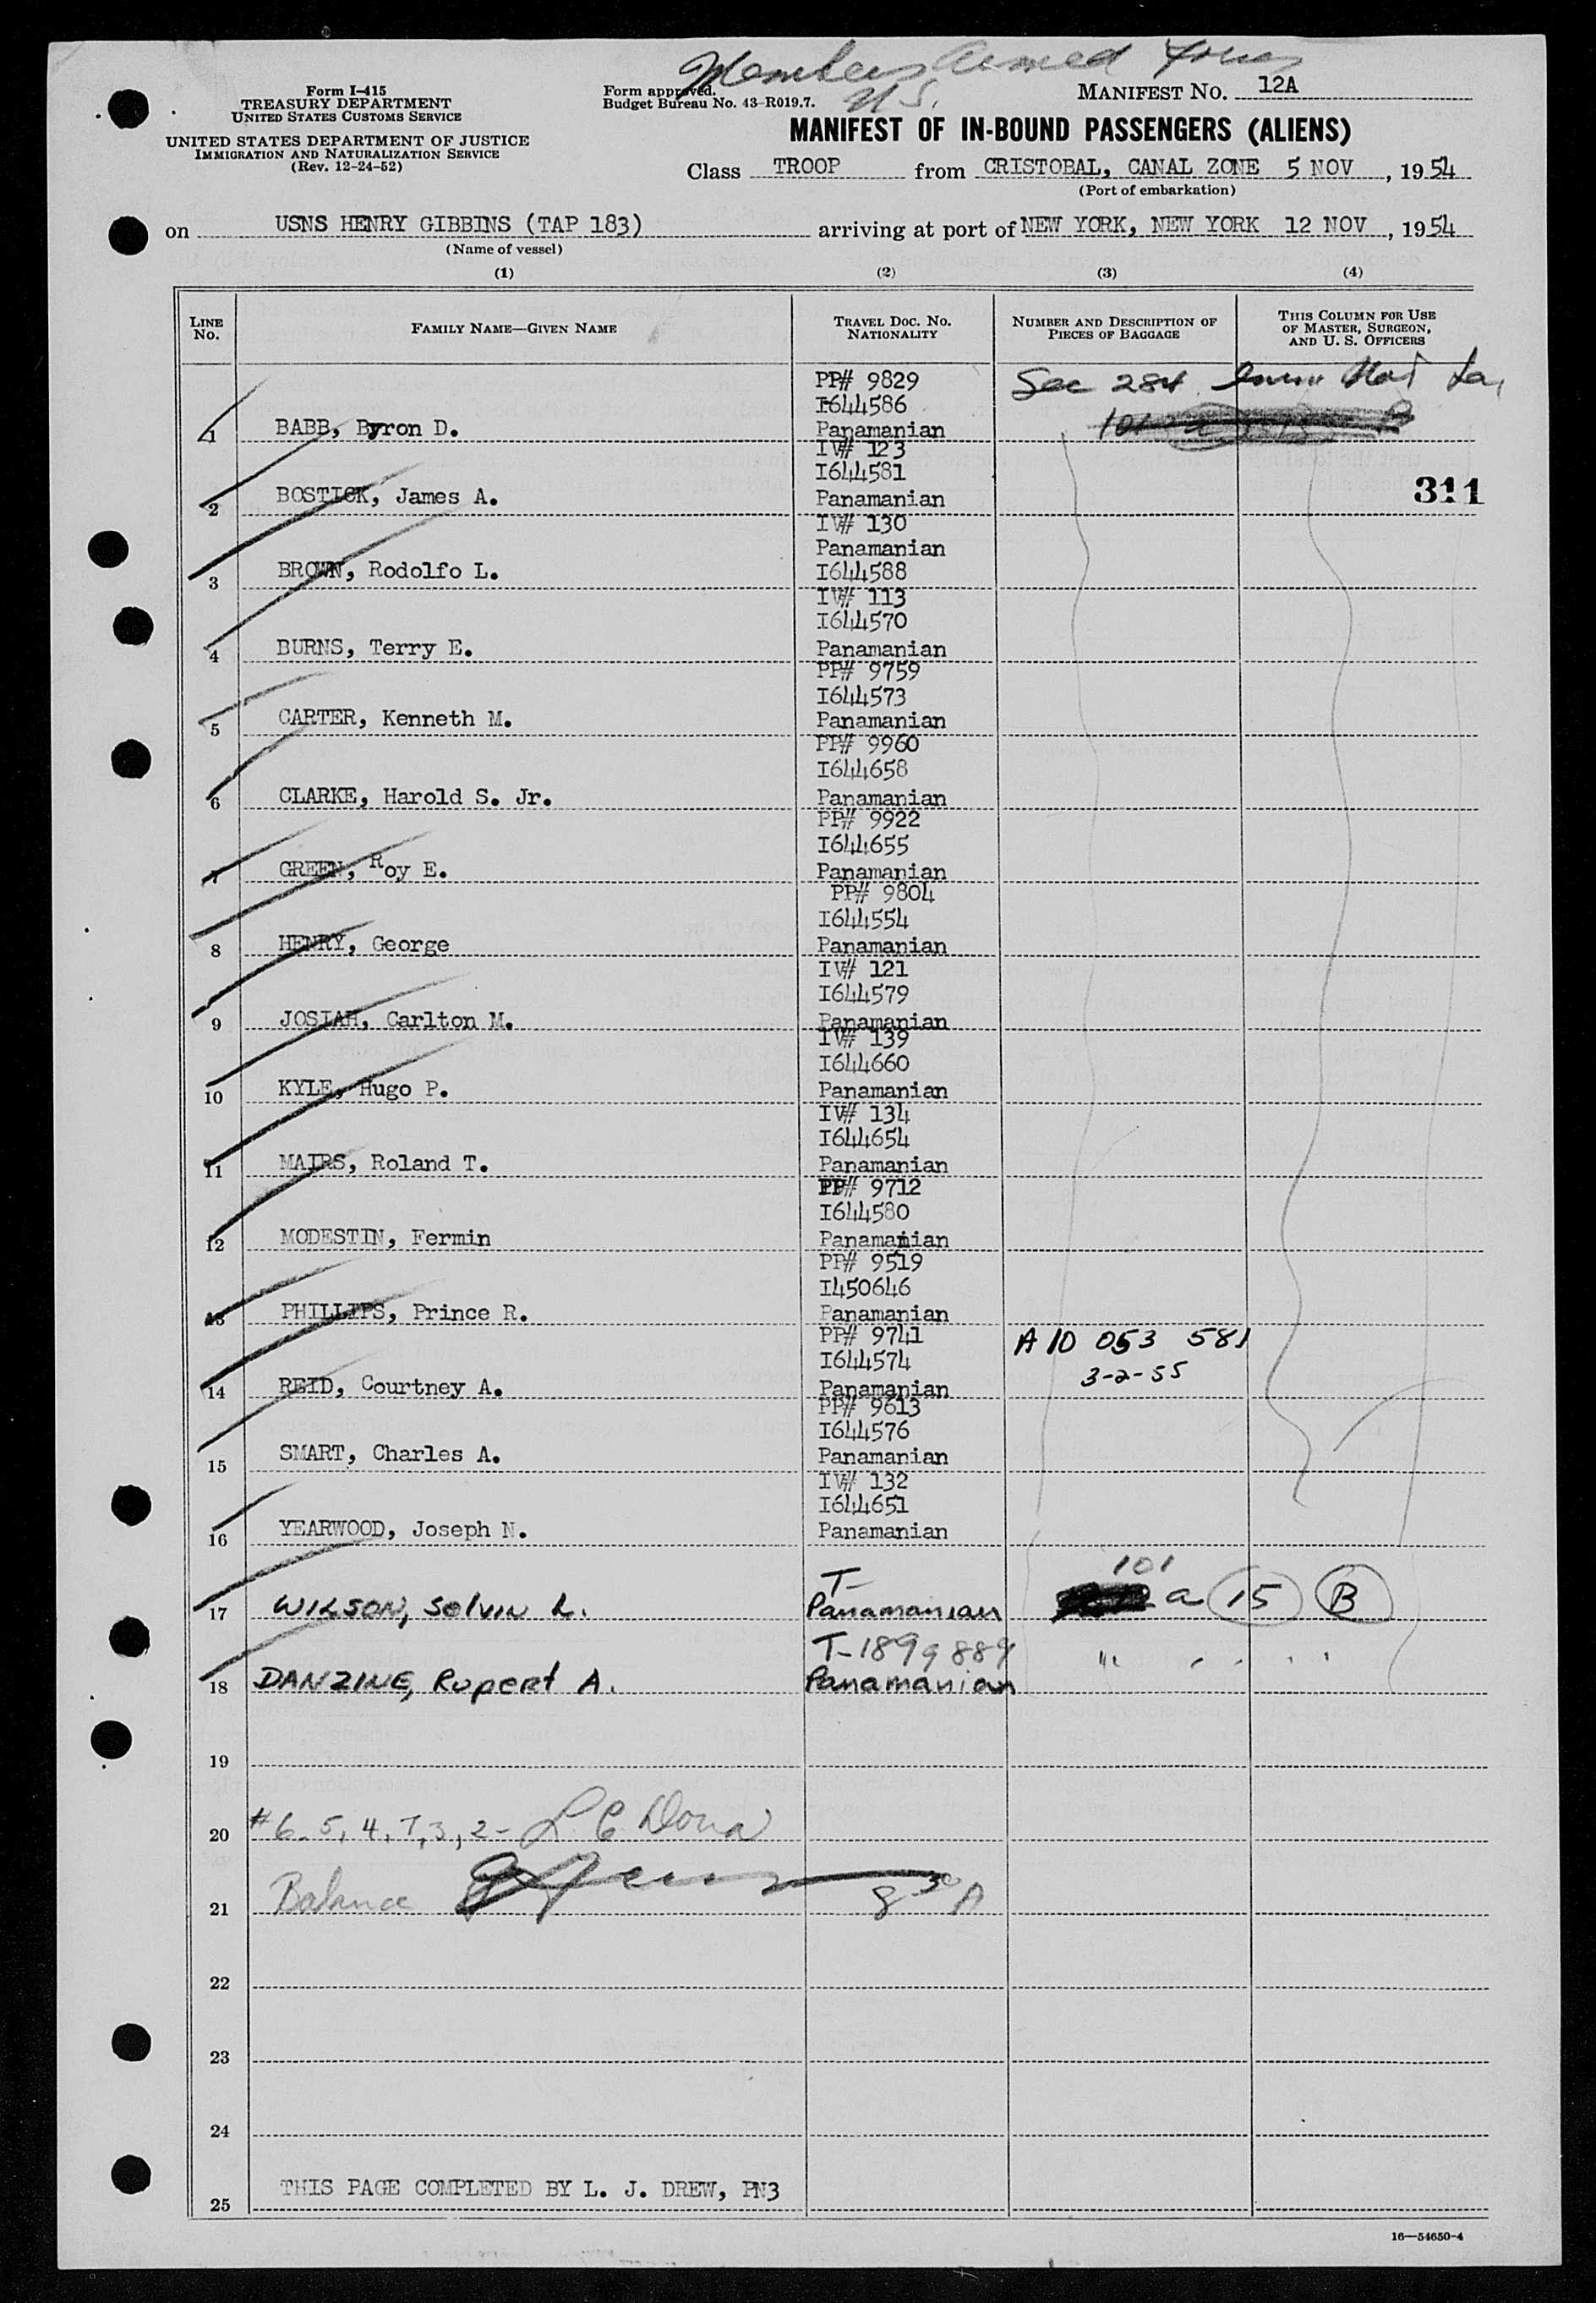 Members Armed Forces
U.S.
Form I-415
TREASURY DEPARTMENT
UNITED STATES CUSTOMS SERVICE
UNITED STATES DEPARTMENT OF JUSTICE
IMMIGRATION AND NATURALIZATION SERVICE
(Rev. 12-24-52)
Form approved.
Budget Bureau No. 43-R019.7.
MANIFEST NO. 12A
MANIFEST OF IN-BOUND PASSENGERS (ALIENS)
Class TROOP from CRISTOBAL, CANAL ZONE 5 NOV, 1954
(Port of embarkation)
on USNS HENRY GIBBINS (TAP 183) arriving at port of NEW YORK, NEW YORK 12 NOV, 1954
(Name of vessel)
(1) (2) (3) (4)
LINE NO.
FAMILY NAME—GIVEN NAME
TRAVEL DOC. NO. NATIONALITY
NUMBER AND DESCRIPTION OF PIECES OF BAGGAGE
THIS COLUMN FOR USE OF MASTER, SURGEON, AND U. S. OFFICERS
PP# 9829 Sec 284
I644586
1 BABB, Byron D. Panamanian
IV# 123
I644581
2 BOSTICK, James A. Panamanian
311
IV# 130
Panamanian
3 BROWN, Rodolfo L. I644588
IV# 113
I644570
4 BURNS, Terry E. Panamanian
PP# 9759
I644573
5 CARTER, Kenneth M. Panamanian
PP# 9960
I644658
6 CLARKE, Harold S. Jr. Panamanian
PP# 9922
I644655
7 GREEN, Roy E. Panamanian
PP# 9804
I644554
8 HENRY, George Panamanian
IV# 121
I644579
9 JOSIAH, Carlton M. Panamanian
IV# 139
I644660
10 KYLE, Hugo P. Panamanian
IV# 134
I644654
11 MAIRS, Roland T. Panamanian
PP# 9712
I644580
12 MODESTIN, Fermin Panamanian
PP# 9519
I450646
13 PHILLIPS, Prince R. Panamanian
PP# 9741 A10 053 581
I644574 3-2-55
14 REID, Courtney A. Panamanian
PP# 9613
I644576
15 SMART, Charles A. Panamanian
IV# 132
I644651
16 YEARWOOD, Joseph N. Panamanian
T- 101
17 WILSON, Selvin L. Panamanian a 15 B
T-1899889 "
18 DANZINE, Rupert A. Panamanian
19
20 #6, 5, 4, 7, 3, 2-
21 Balance 8 30 A
22
23
24
25 THIS PAGE COMPLETED BY L. J. DREW, PN3
16—54650-4